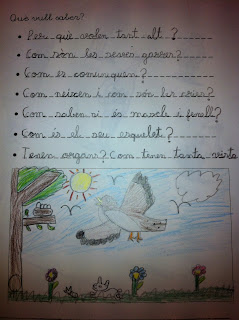 Què vull saber?
• Per què volen tant alt?
• Com són les seves garres?
• Com es comuniquen?
• Com neixen i com són les cries?
• Com saben si és mascle i femella?
• Com és el seu esquelet?
• Tenen òrgans? Com tenen tanta vista